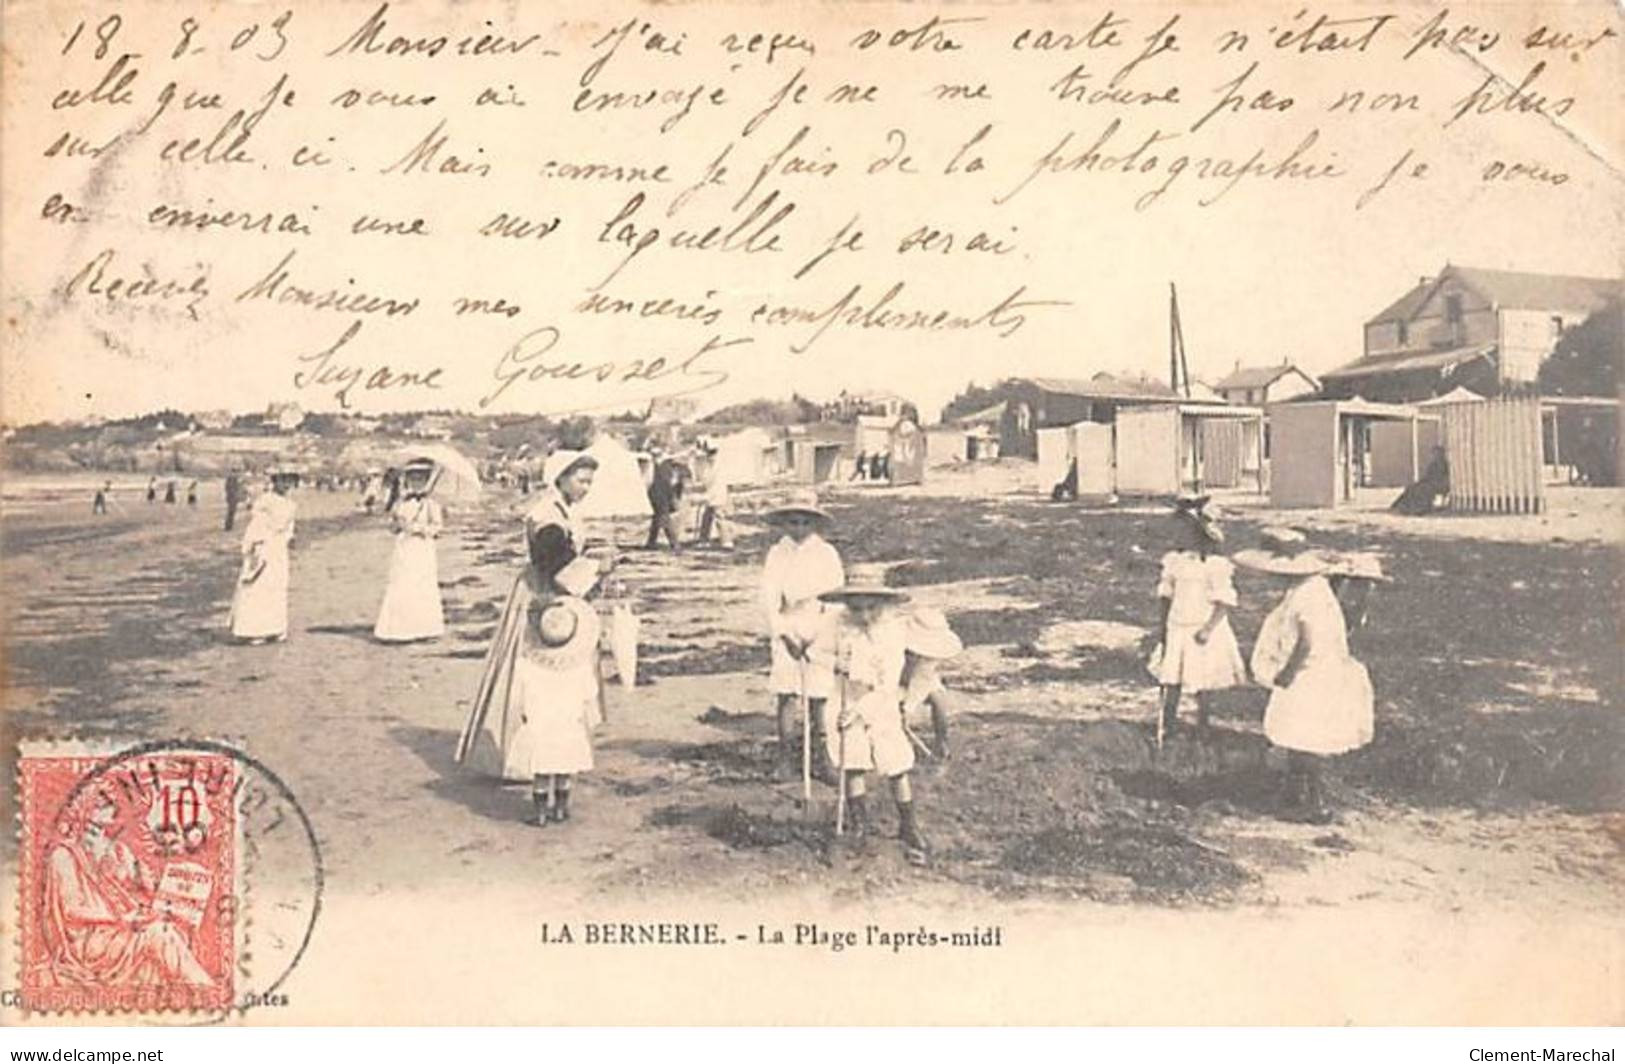 18-8-03 Monsieur - J'ai reçu votre carte je n'était pas sur
celle que je vous ai envoyé je ne me trouve pas non plus
sur celle. ci. Mais comme je fais de la photographie je vous
en enverrai une sur laquelle je serai.
Recevez Monsieur mes sincères compléments
Suzane Gousset
10
LOIRE INFRE
03
LA BERNERIE. - La Plage l'après-midi
delcampe.net
Clement-Marechal